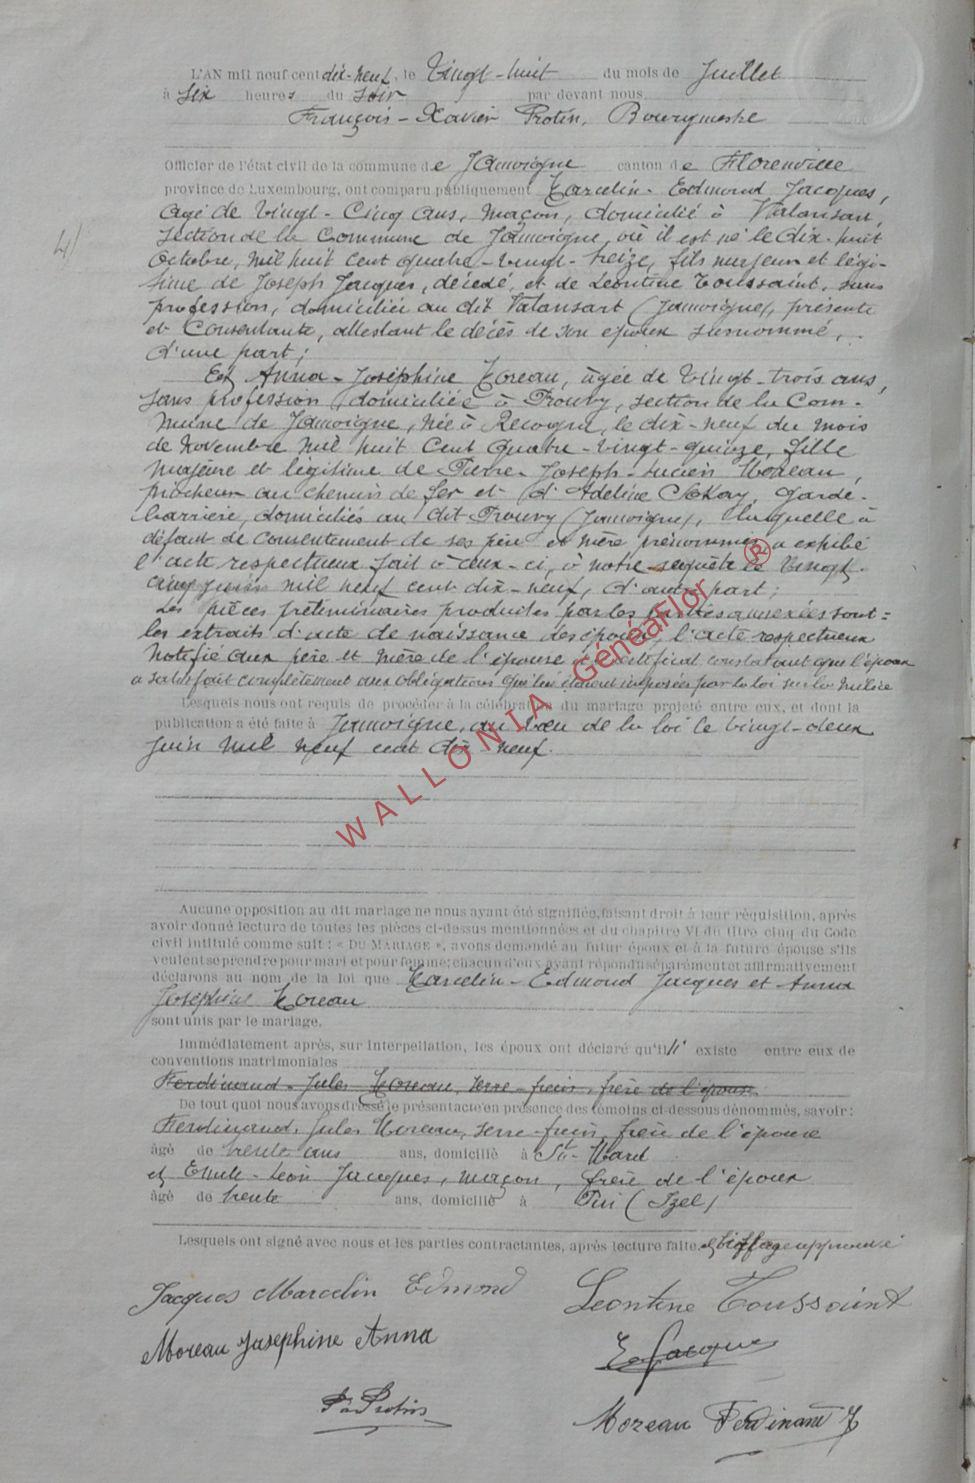 L'AN mil neuf cent dix-neuf, le Vingt-huit du mois de Juillet
à six heures du soir par devant nous
François-Xavier Protin, Bourgmestre
Officier de l'état civil de la commune de Jamoigne canton de Florenville
province de Luxembourg, ont comparu publiquement Marcelin-Edmond Jacques,
agé de vingt-cinq ans, maçon, domicilié à Valansart,
section de la commune de Jamoigne, où il est né le dix-huit
Octobre, mil huit cent quatre-vingt-treize, fils majeur et légi-
time de Joseph Jacques, décédé, et de Léontine Toussaint, sans
profession, domiciliée au dit Valansart (Jamoigne), présente
et consentante, attestant le décès de son époux susnommé,
d'une part;
4/
Et Anna-Joséphine Moreau, âgée de vingt-trois ans,
sans profession, domiciliée à Prouvy, section de la com-
mune de Jamoigne, née à Recogne, le dix-neuf du mois
de Novembre mil huit cent quatre-vingt-quinze, fille
majeure et légitime de Pierre-Joseph-Lucien Moreau,
piocheur au chemin de fer et d'Adeline garde-
barrière, domiciliés au dit Prouvy (Jamoigne), laquelle à
défaut de consentement de ses père et mère prénommés, a exhibé
l'acte respectueux fait à ceux-ci, à notre requête le vingt-
cinq juin mil neuf cent dix-neuf, d'autre part;
Les pièces préliminaires produites par les parties annexées sont:
les extraits d'acte de naissance des époux, l'acte respectueux
notifié aux père et mère de l'épouse et le certificat constatant que l'époux
a satisfait complètement aux obligations qui lui étaient imposées par la loi sur la milice
Lesquels nous ont requis de procéder à la célébration du mariage projeté entre eux, et dont la
publication a été faite à Jamoigne, au vœu de la loi le vingt-deux
juin mil neuf cent dix-neuf.
WALLONIA GénéaFlor ®
Aucune opposition au dit mariage ne nous ayant été signifiée, faisant droit à leur réquisition, après
avoir donné lecture de toutes les pièces ci-dessus mentionnées et du chapitre VI du titre cinq du Code
civil intitulé comme suit : « DU MARIAGE », avons demandé au futur époux et à la future épouse s'ils
veulent se prendre pour mari et pour femme; chacun d'eux ayant répondu séparément et affirmativement
déclarons au nom de la loi que Marcelin-Edmond Jacques et Anna
Joséphine Moreau
sont unis par le mariage.
Immédiatement après, sur interpellation, les époux ont déclaré qu'il n' existe entre eux de
conventions matrimoniales
Ferdinand-Jules Moreau, serre-frein, frère de l'épouse
De tout quoi nous avons dressé le présent acte en présence des témoins ci-dessous dénommés, savoir :
Ferdinand-Jules Moreau, serre-frein, frère de l'épouse
âgé de trente ans ans, domicilié à St-Mard
et Emile-Léon Jacques, maçon, frère de l'époux
âgé de trente ans, domicilié à Pin (Izel)
Lesquels ont signé avec nous et les parties contractantes, après lecture faite. et biffage approuvé
Jacques Marcelin Edmond Leontine Toussaint
Moreau Josephine Anna E Jacques
Protin
Moreau Ferdinant J